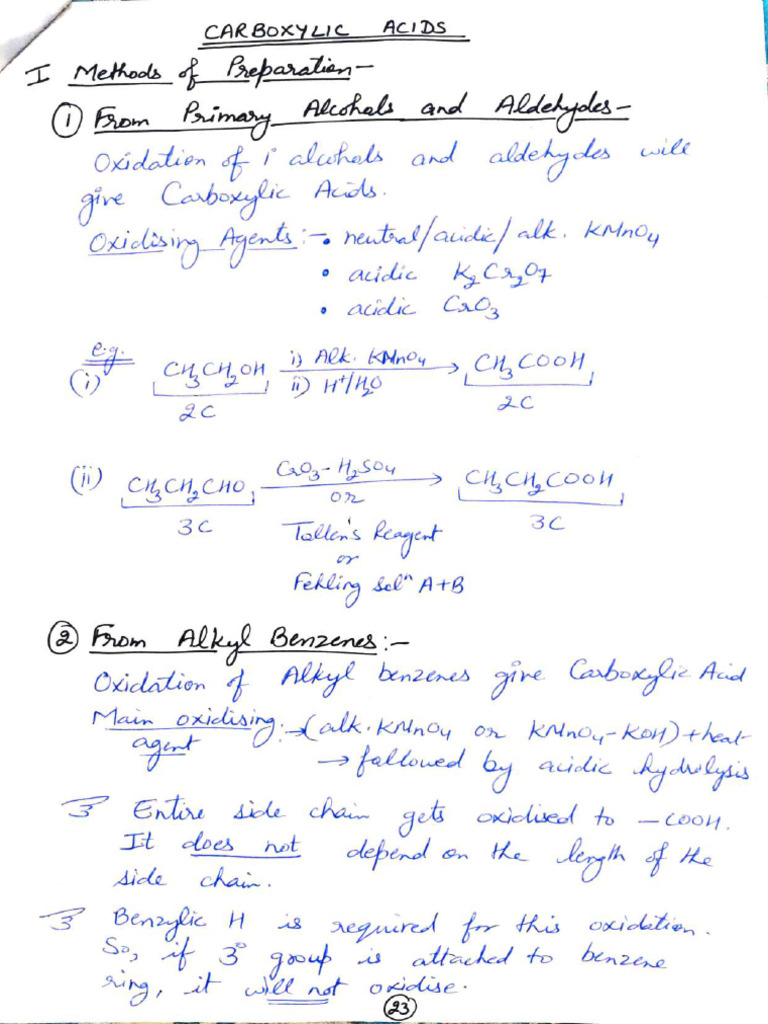 CARBOXYLIC ACIDS
I Methods of Preparation-
① From Primary Alcohols and Aldehydes-
Oxidation of 1° alcohols and aldehydes will
give Carboxylic Acids.
Oxidising Agents:- • neutral/acidic/alk. KMnO4
• acidic K2Cr2O7
• acidic CrO3
e.g.
(i) CH3CH2OH i) Alk. KMnO4 → CH3COOH
ii) H+/H2O
2C 2C
(ii) CH3CH2CHO CrO3-H2SO4 → CH3CH2COOH
or
3C 3C
Tollen's Reagent
or
Fehling solⁿ A+B
② From Alkyl Benzenes:-
Oxidation of Alkyl benzenes give Carboxylic Acid
Main oxidising :→ (alk. KMnO4 or KMnO4-KOH)+heat
agent → followed by acidic hydrolysis
Entire side chain gets oxidised to -COOH.
It does not depend on the length of the
side chain.
Benzylic H is required for this oxidation.
So, if 3° group is attached to benzene
ring, it will not oxidise.
23